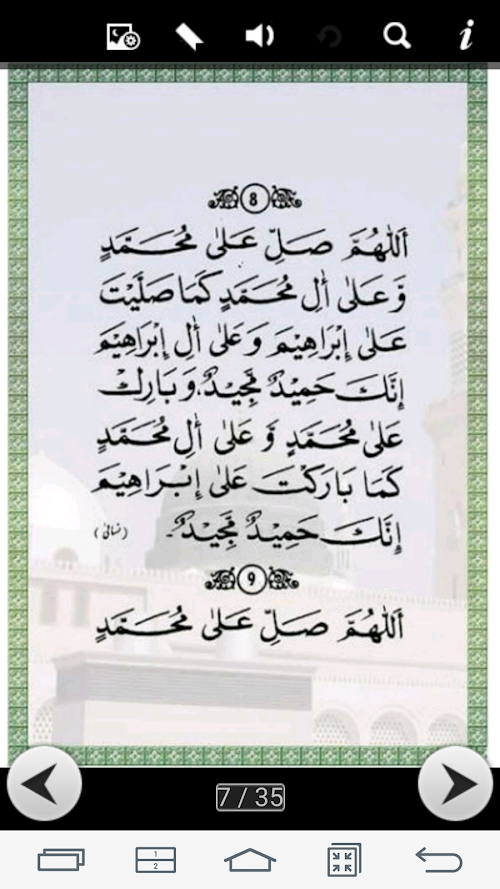 8
اَللّٰهُمَّ صَلِّ عَلٰى مُحَمَّدٍ
وَّعَلٰى اٰلِ مُحَمَّدٍ كَمَا صَلَّيْتَ
عَلٰى إِبْرَاهِيْمَ وَعَلٰى اٰلِ إِبْرَاهِيْمَ
إِنَّكَ حَمِيْدٌ مَّجِيْدٌ. وَبَارِكْ
عَلٰى مُحَمَّدٍ وَّ عَلٰى اٰلِ مُحَمَّدٍ
كَمَا بَارَكْتَ عَلٰى إِبْرَاهِيْمَ
إِنَّكَ حَمِيْدٌ مَّجِيْدٌ۔ (نسائی)
9
اَللّٰهُمَّ صَلِّ عَلٰى مُحَمَّدٍ
7 / 35